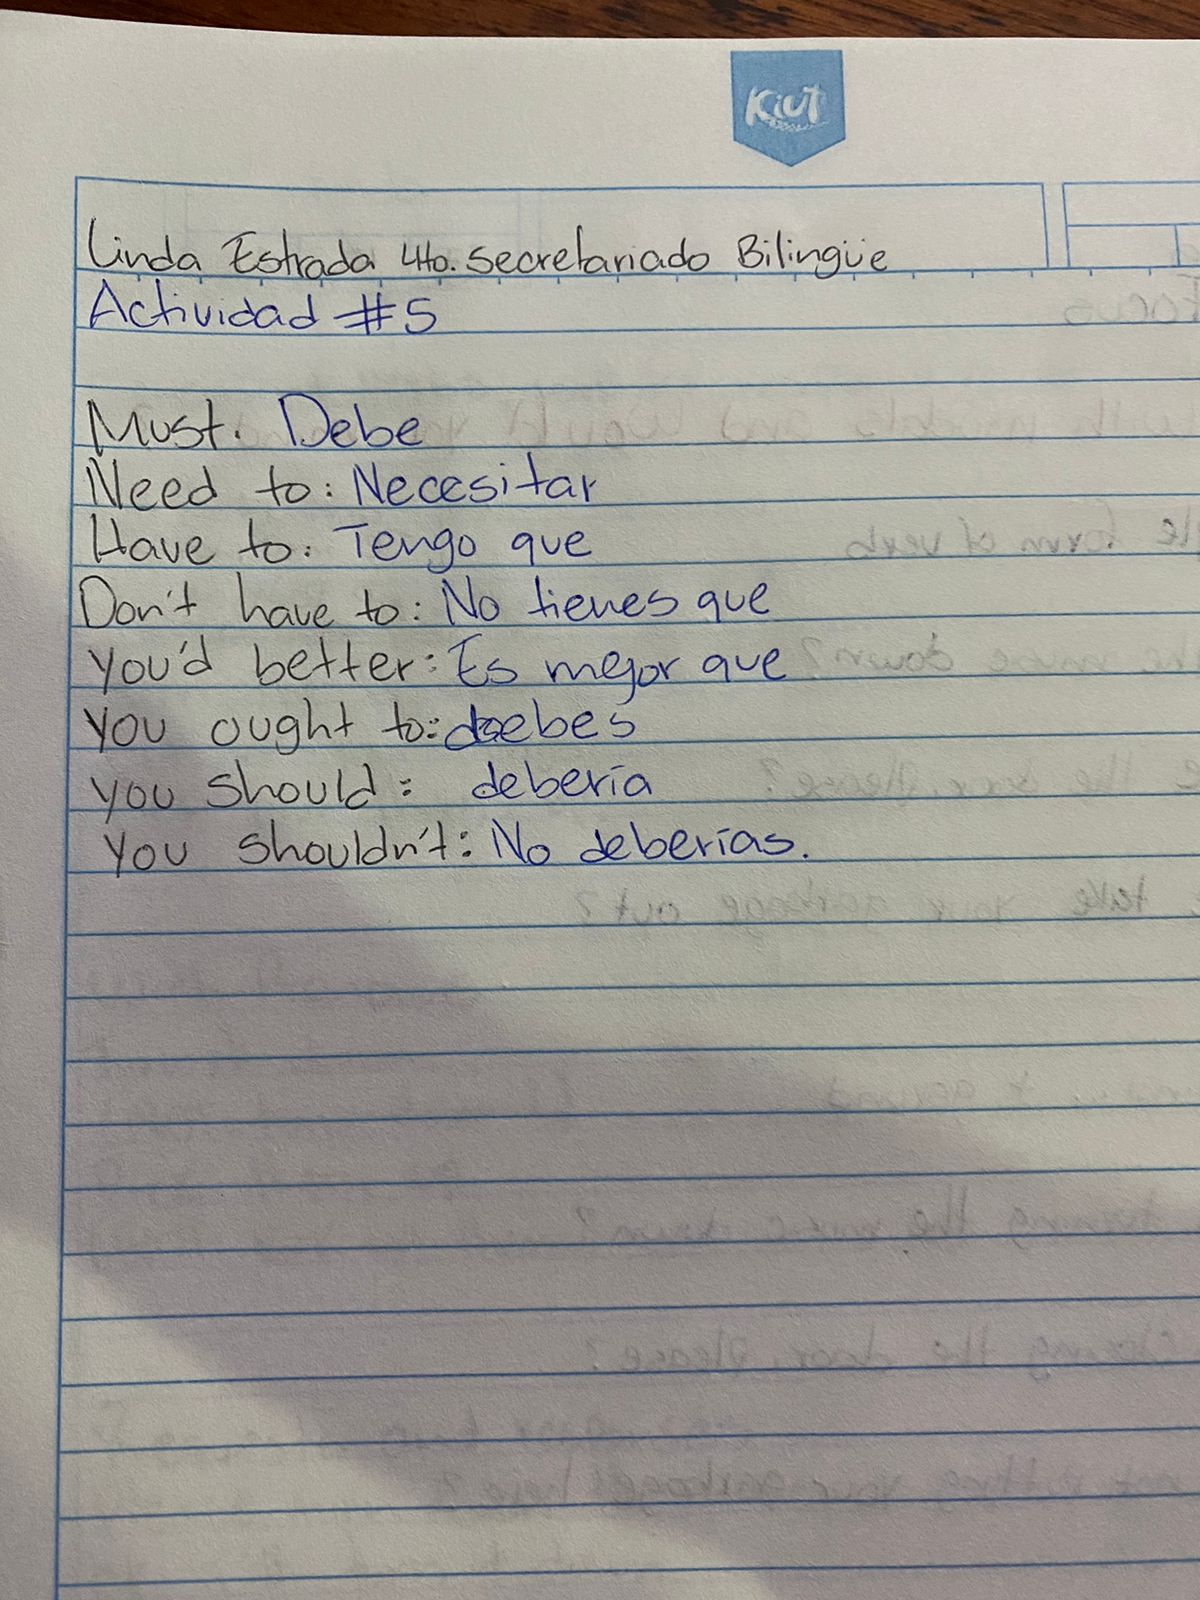 Kiut
Linda Estrada 4to. Secretariado Bilingüe
Actividad #5
Must. Debe
Need to: Necesitar
Have to: Tengo que
Don't have to: No tienes que
You'd better: Es mejor que
You ought to: debes
you should: debería
You shouldn't: No deberías.